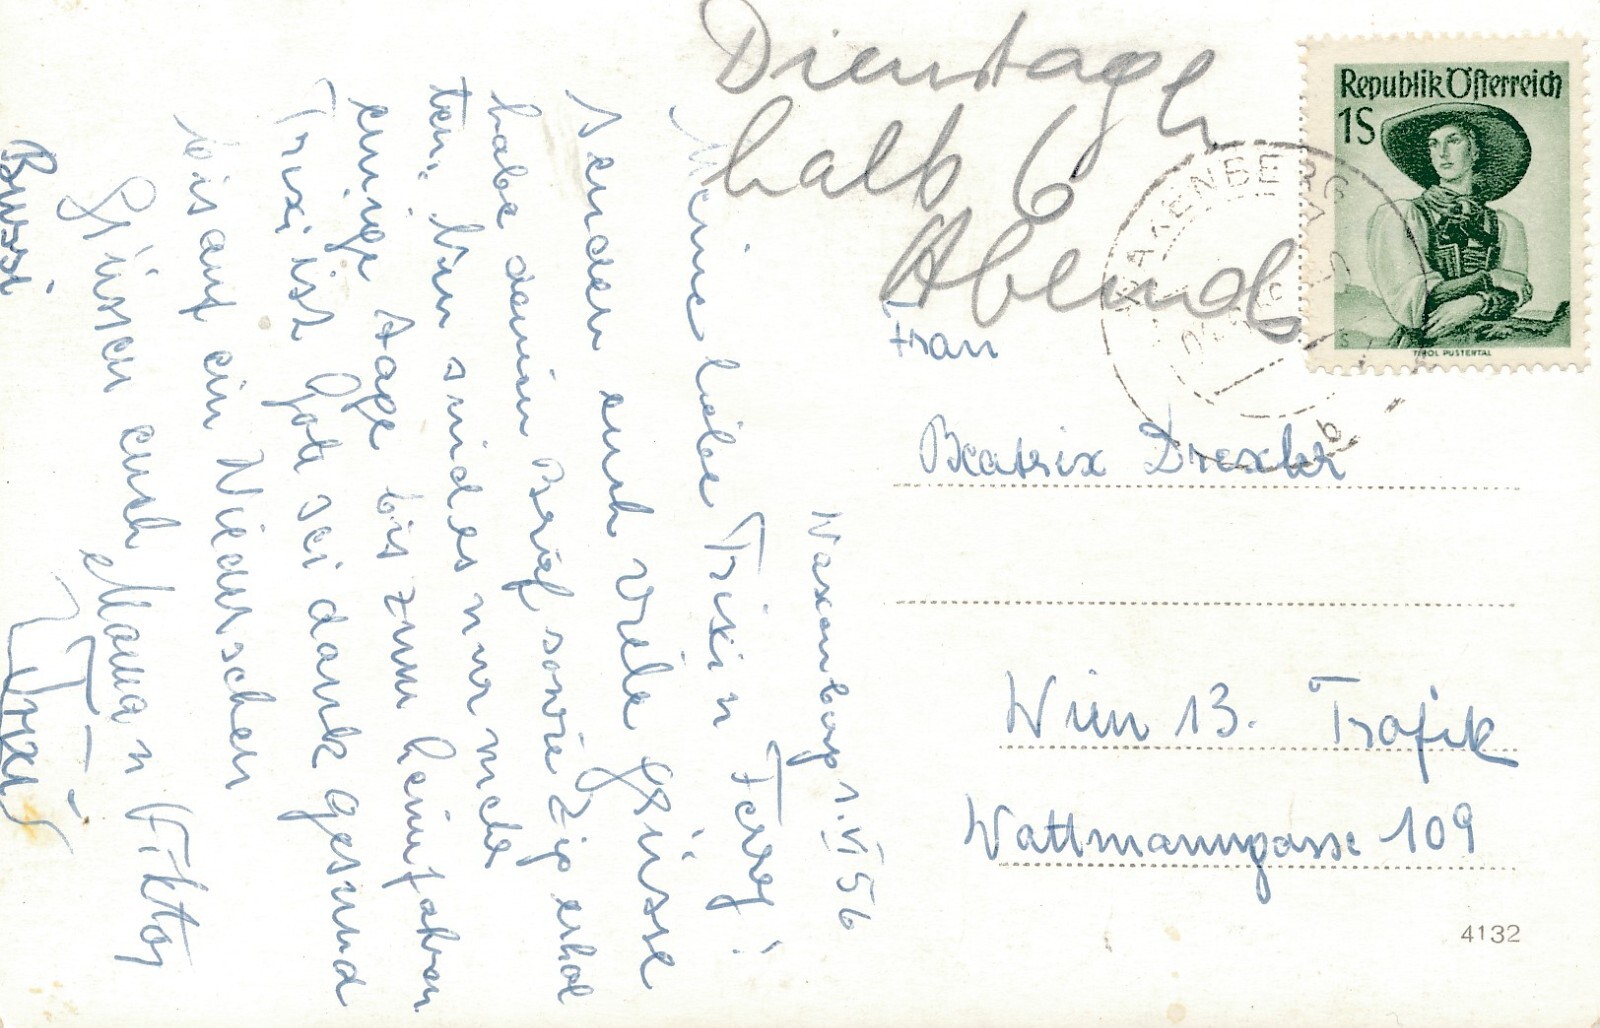 Waxenberg 1.VI 56
Meine liebe Trixi u Ferry!
Senden euch viele Grüsse
habe deinen Brief sowie Zip erhal
ten. Nun sind es nur mehr
einige Tage bis zum heimfahren
Trixi ist Gott sei dank gesund
bis auf ein
Grüssen euch Mama u Viktor
Trixi
Bussi
Dienstag
halb 6
Abend
Republik Österreich
1S
TIROL PUSTERTAL
Frau
Beatrix Drexler
Wien 13. Trafik
Wattmanngasse 109
4132